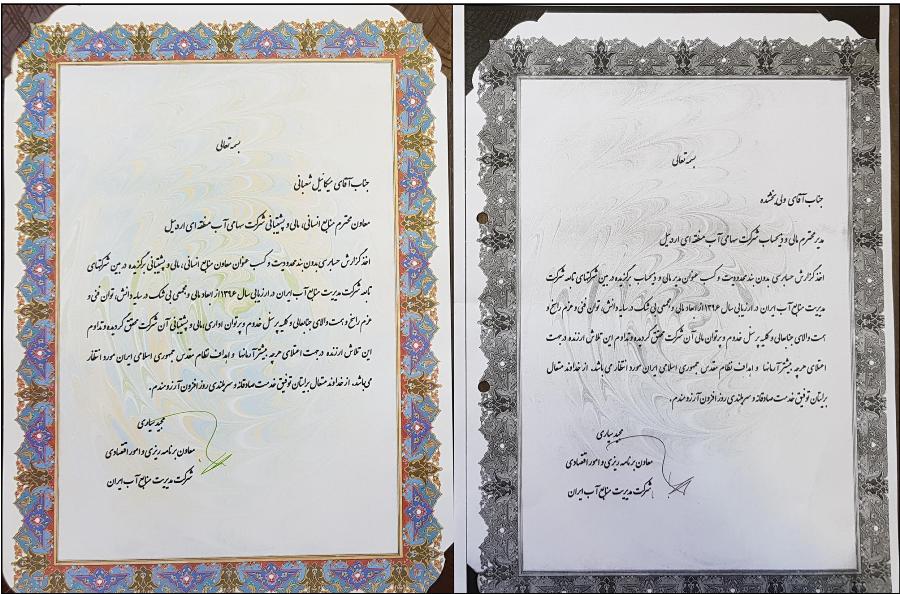 بسمه تعالی
جناب آقای میکائیل شعبانی
معاون محترم منابع انسانی، مالی و پشتیبانی شرکت سهامی آب منطقه ای اردبیل
اخذ گزارش حسابرسی بدون بند محدودیت و کسب عنوان معاون منابع انسانی، مالی و پشتیبانی برگزیده در بین شرکتهای
تابعه شرکت مدیریت منابع آب ایران در ارزیابی سال ۱۳۹۶ از ابعاد مالی و مجمعی بی شک در سایه دانش، توان فنی و
عزم راسخ و همت والای جنابعالی و کلیه پرسنل خدوم و پرتوان اداری، مالی و پشتیبانی آن شرکت محقق گردیده و تداوم
این تلاش ارزنده در جهت اعتلای هرچه بیشتر آرمانها و اهداف نظام مقدس جمهوری اسلامی ایران مورد انتظار
می باشد. از خداوند متعال برایتان توفیق خدمت صادقانه و سربلندی روز افزون آرزومندم.
مجید سیاری
معاون برنامه ریزی و امور اقتصادی
شرکت مدیریت منابع آب ایران
بسمه تعالی
جناب آقای ولی بخشنده
مدیر محترم مالی و ذیحساب شرکت سهامی آب منطقه ای اردبیل
اخذ گزارش حسابرسی بدون بند محدودیت و کسب عنوان مدیر مالی و ذیحساب برگزیده در بین شرکتهای تابعه شرکت
مدیریت منابع آب ایران در ارزیابی سال ۱۳۹۶ از ابعاد مالی و مجمعی بی شک در سایه دانش، توان فنی و عزم راسخ و
همت والای جنابعالی و کلیه پرسنل خدوم و پرتوان مالی آن شرکت محقق گردیده و تداوم این تلاش ارزنده در جهت
اعتلای هرچه بیشتر آرمانها و اهداف نظام مقدس جمهوری اسلامی ایران مورد انتظار می باشد. از خداوند متعال
برایتان توفیق خدمت صادقانه و سربلندی روز افزون آرزومندم.
مجید سیاری
معاون برنامه ریزی و امور اقتصادی
شرکت مدیریت منابع آب ایران